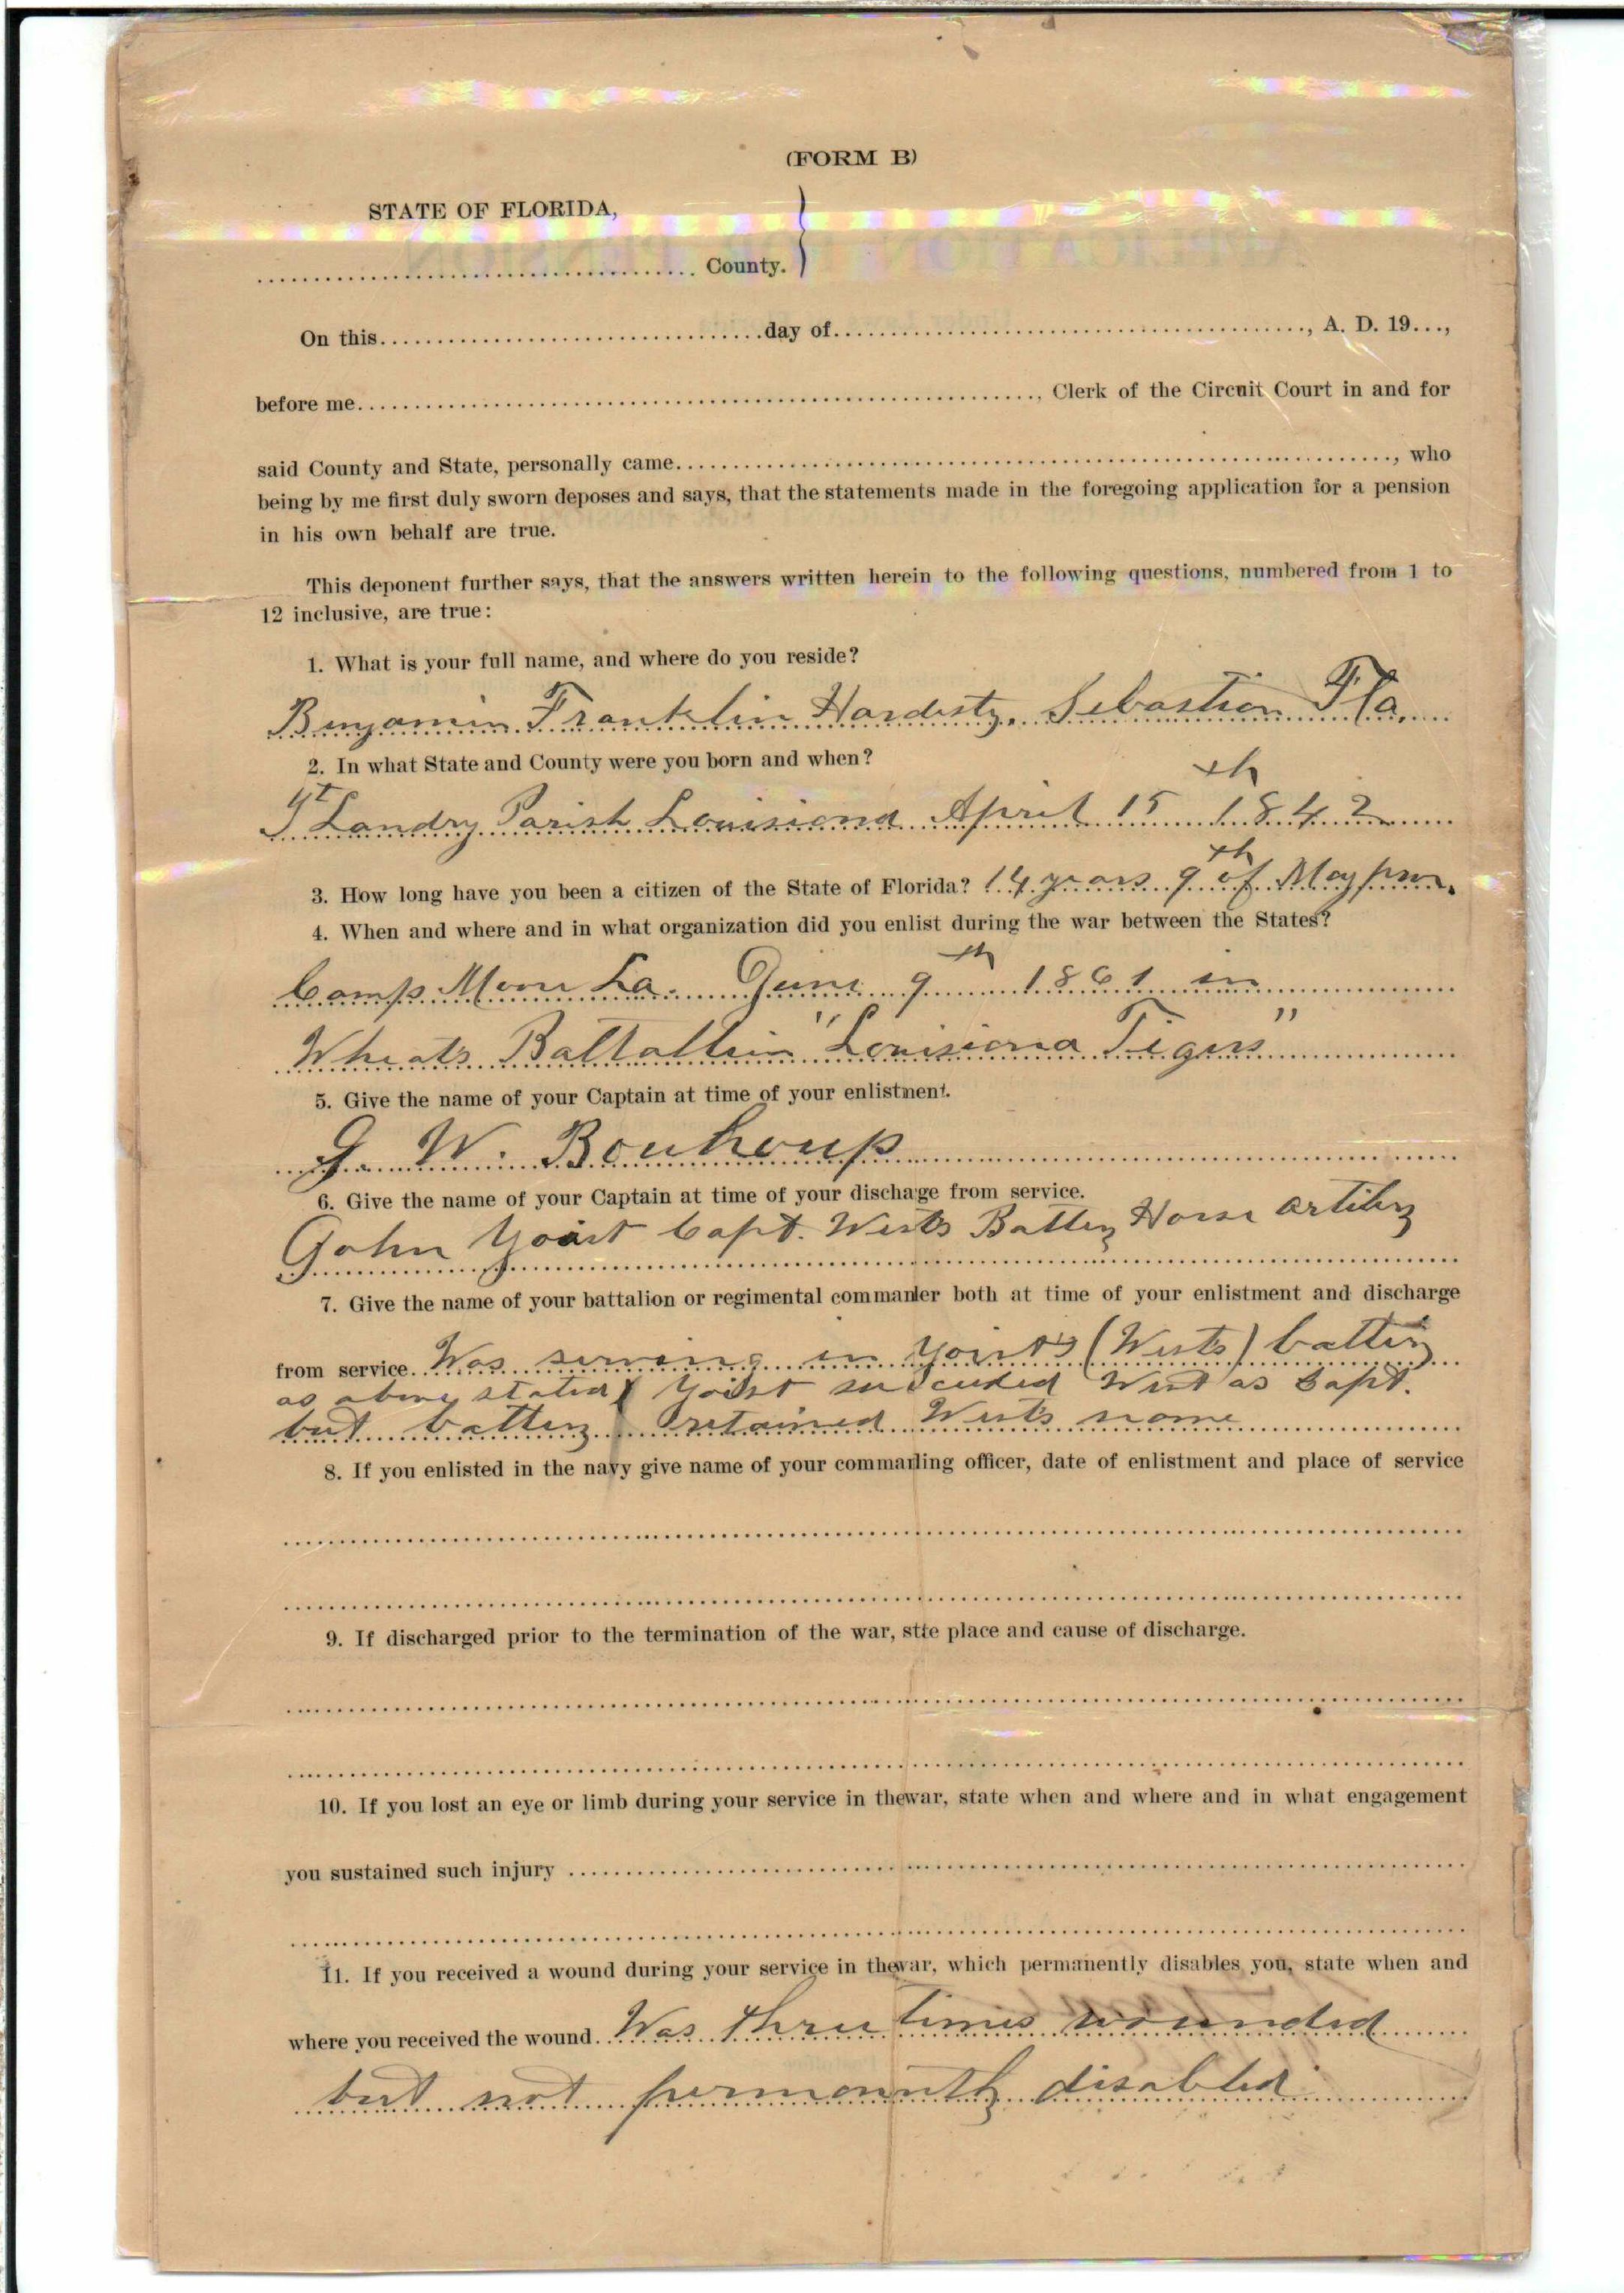 (FORM B)
STATE OF FLORIDA,
County.
On this day of , A. D. 19...,
before me , Clerk of the Circuit Court in and for
said County and State, personally came , who
being by me first duly sworn deposes and says, that the statements made in the foregoing application for a pension
in his own behalf are true.
This deponent further says, that the answers written herein to the following questions, numbered from 1 to
12 inclusive, are true:
1. What is your full name, and where do you reside?
Benjamin Franklin Hardesty. Sebastian Fla.
2. In what State and County were you born and when?
St Landry Parish Louisiana April 15th 1842
3. How long have you been a citizen of the State of Florida? 14 years 9th of May
4. When and where and in what organization did you enlist during the war between the States?
Camp Moore La. June 9th 1861 in
Wheats Battallion "Louisiana Tigers"
5. Give the name of your Captain at time of your enlistment.
W.
6. Give the name of your Captain at time of your discharge from service.
John Yoist Capt. Wests Battery Horse Artilery
7. Give the name of your battalion or regimental commanler both at time of your enlistment and discharge
from service. Was serving in (Wests) battery
as above stated Yoist succeeded West as Capt.
but battery retained Wests name
8. If you enlisted in the navy give name of your commarling officer, date of enlistment and place of service
9. If discharged prior to the termination of the war, stte place and cause of discharge.
10. If you lost an eye or limb during your service in thewar, state when and where and in what engagement
you sustained such injury
11. If you received a wound during your service in thewar, which permanently disables you, state when and
where you received the wound. Was three times wounded
but not permanently disabled